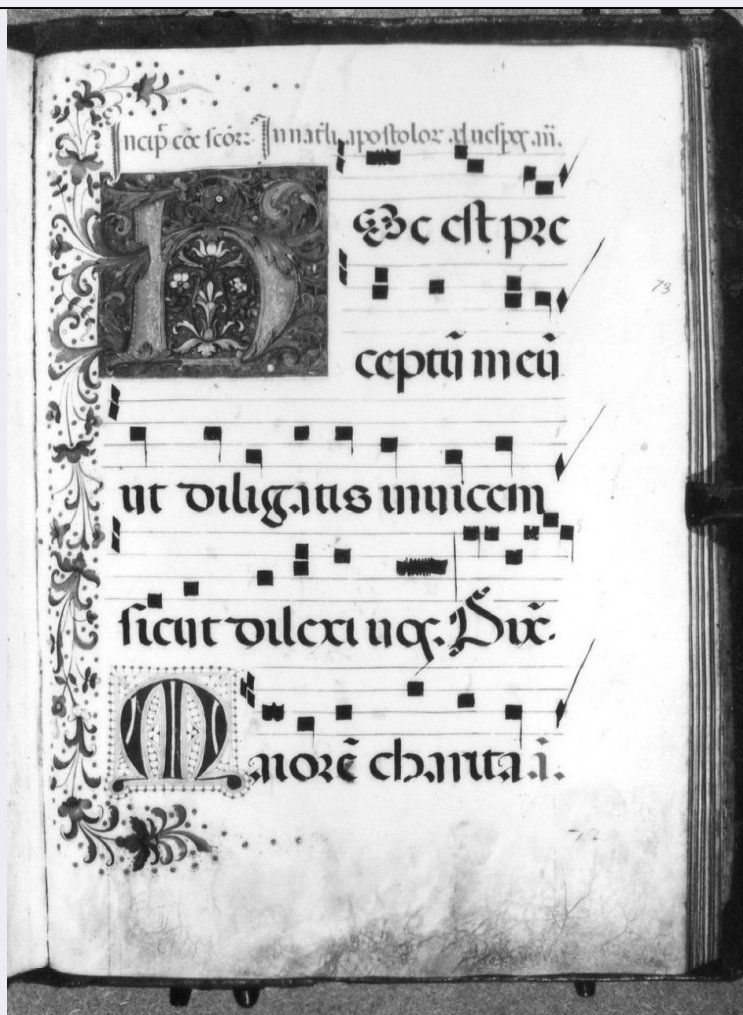 Incip̄ cōe scōꝝ: In nat̄li apostoloꝝ ad uesp̄ꝝ. an̄.
Hec est pre
ceptū meū
ut diligatis inuicem
sicut dilexi uos. Dix̄.
Maiorē charita. ā.
73